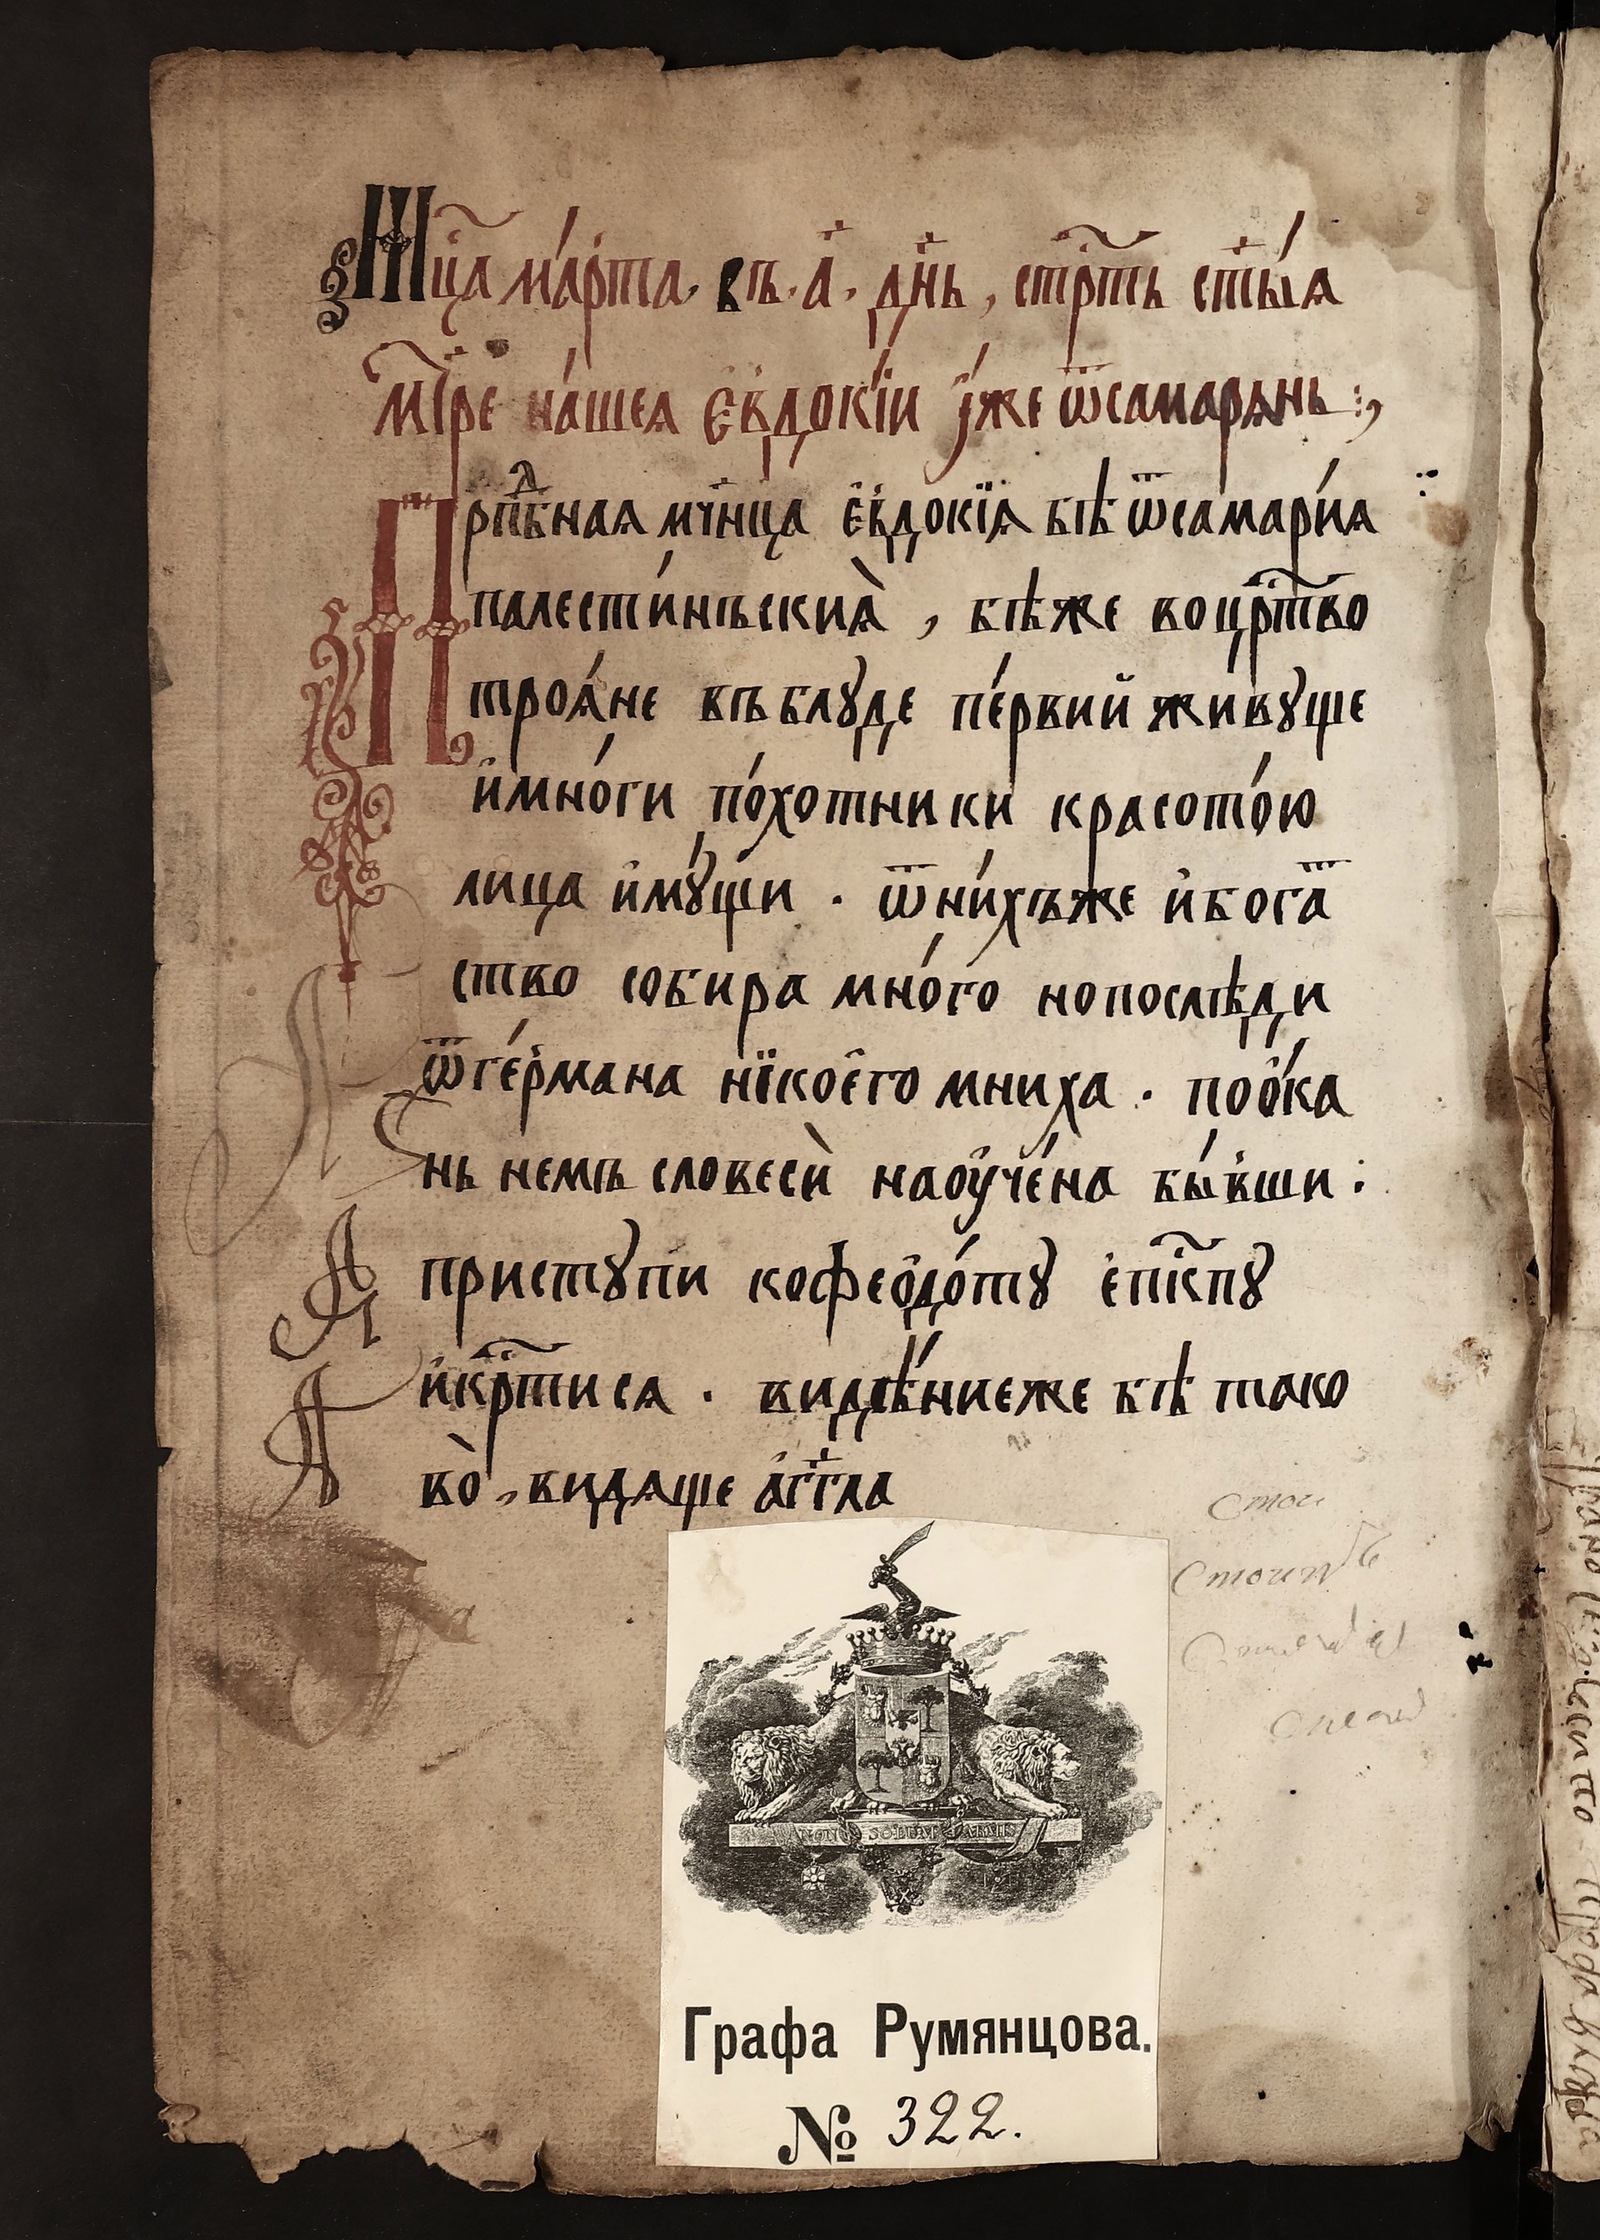 Мц҃а ма́рта, въ·а҃· дн҃ь, стр҃ть ст҃ы́ѧ
мт҃ре на́шеѧ є҆вдокі́и ꙗ҆́же ѿсамарѧнь:,
Прпⷣбнаѧ мч҃нца є҆вдокїѧ бѣ ѿсамари́ѧ
палести́нъскиѧ̀, бѣже воцр҃тво
троѧ́не въблꙋде пе́рвий живꙋще
и҆мно́ги по́хотники красото́ю
лица и҆мꙋ́щи · ѿни́хъже и҆богаⷮ
ство собира мно́го нопослѣди
ѿге́рмана нїкое҆го мниха · поо҆́ка
нь немъ словесѝ наоу҆че́на бы́вши:
пристꙋпи кофео҆до́тꙋ е҆пк҃пꙋ
и҆кр҃тисѧ · видѣ́ниеже бѣ тако
во̀, видѧще а҆́гг҃ла
NON SOLUM ARMIS
Графа Румянцова.
№ 322.